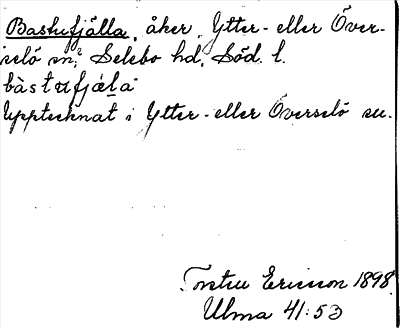 Bastufjälla, åker, Ytter- eller Över-
selö sn, Selebo hd, Söd. l.
bàstufjæla
Upptecknat i Ytter- eller Överselö sn.
Torsten Ericsson 1898
Ulma 41:53